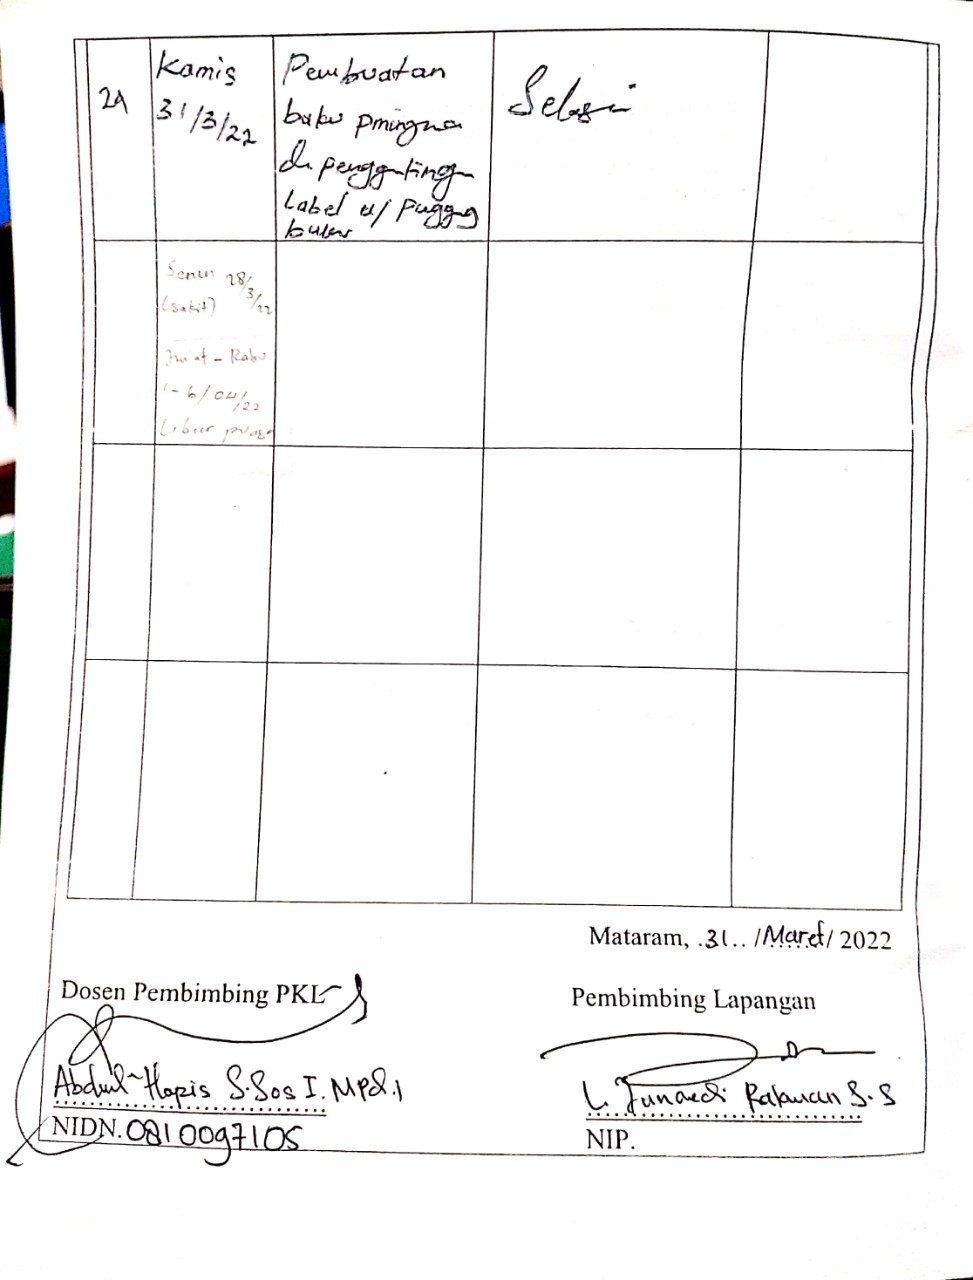 29
Kamis
31/3/22
Pembuatan
buku
di penggutingan
Label u/ punggung
buku
Selesai
Senin 28/3/22
(sakit)
Jmat - Rabu
1-6/04/22
Libur puasa
Mataram, .31.. /Maret/ 2022
Dosen Pembimbing PKL
Abdul Hapis S.Sos I. MPd.I
NIDN. 0810097105
Pembimbing Lapangan
L. Junaedi Rahman S.S
NIP.